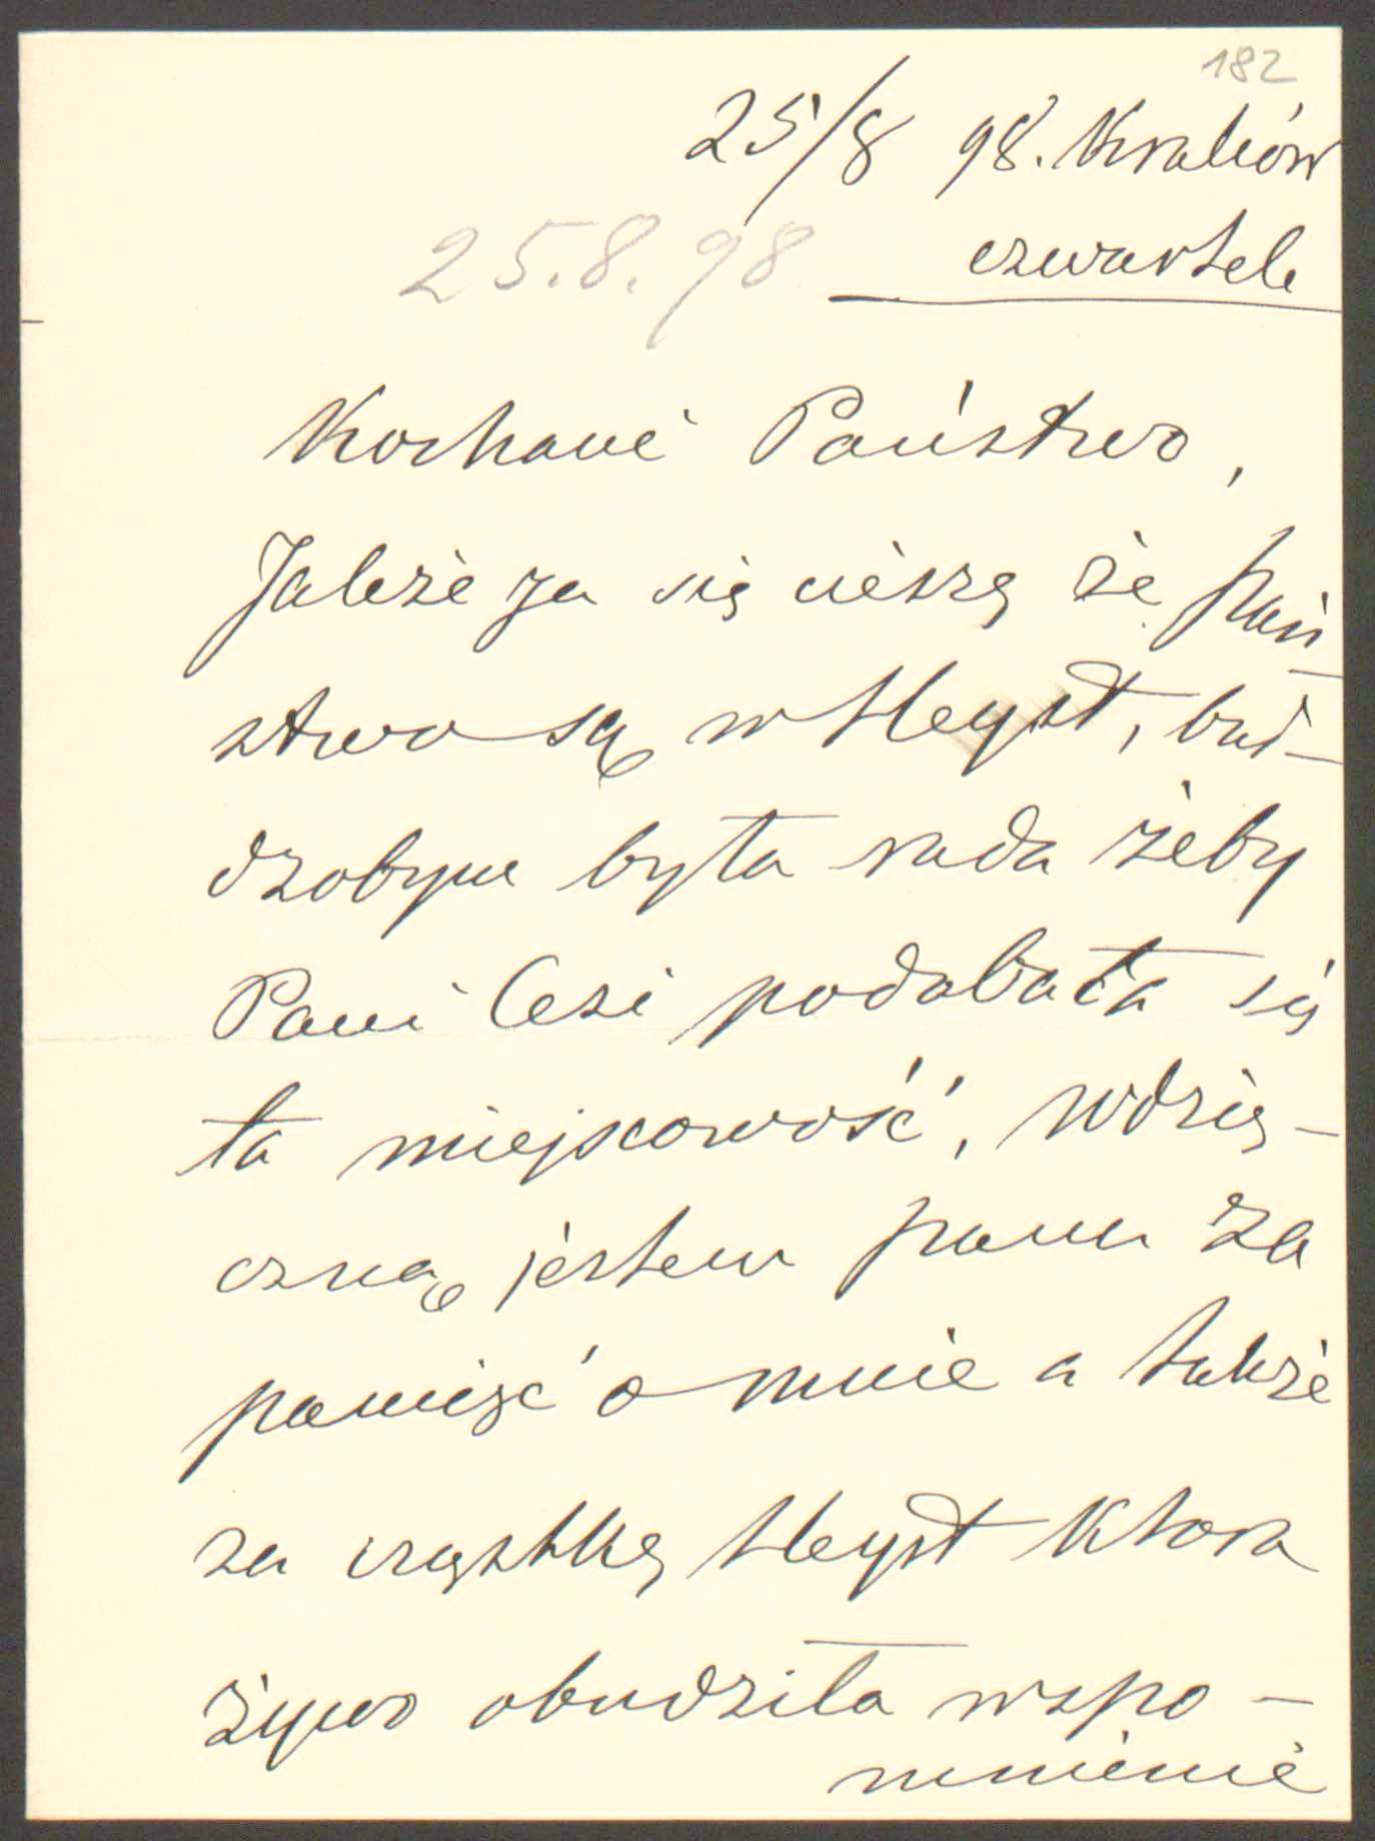 182
25/8 98. Kraków
czwartek
25.8.98
Kochani Państwo,
Jakże ja się cieszę że pań-
stwo są w Heyst, bar-
dzobym była rada żeby
Pani Cesi podobała się
ta miejscowość, wdzię-
czną jestem panu za
pamięć o mnie a także
za cząstkę Heyst ktora
żywo obudziła wspo-
mnienie